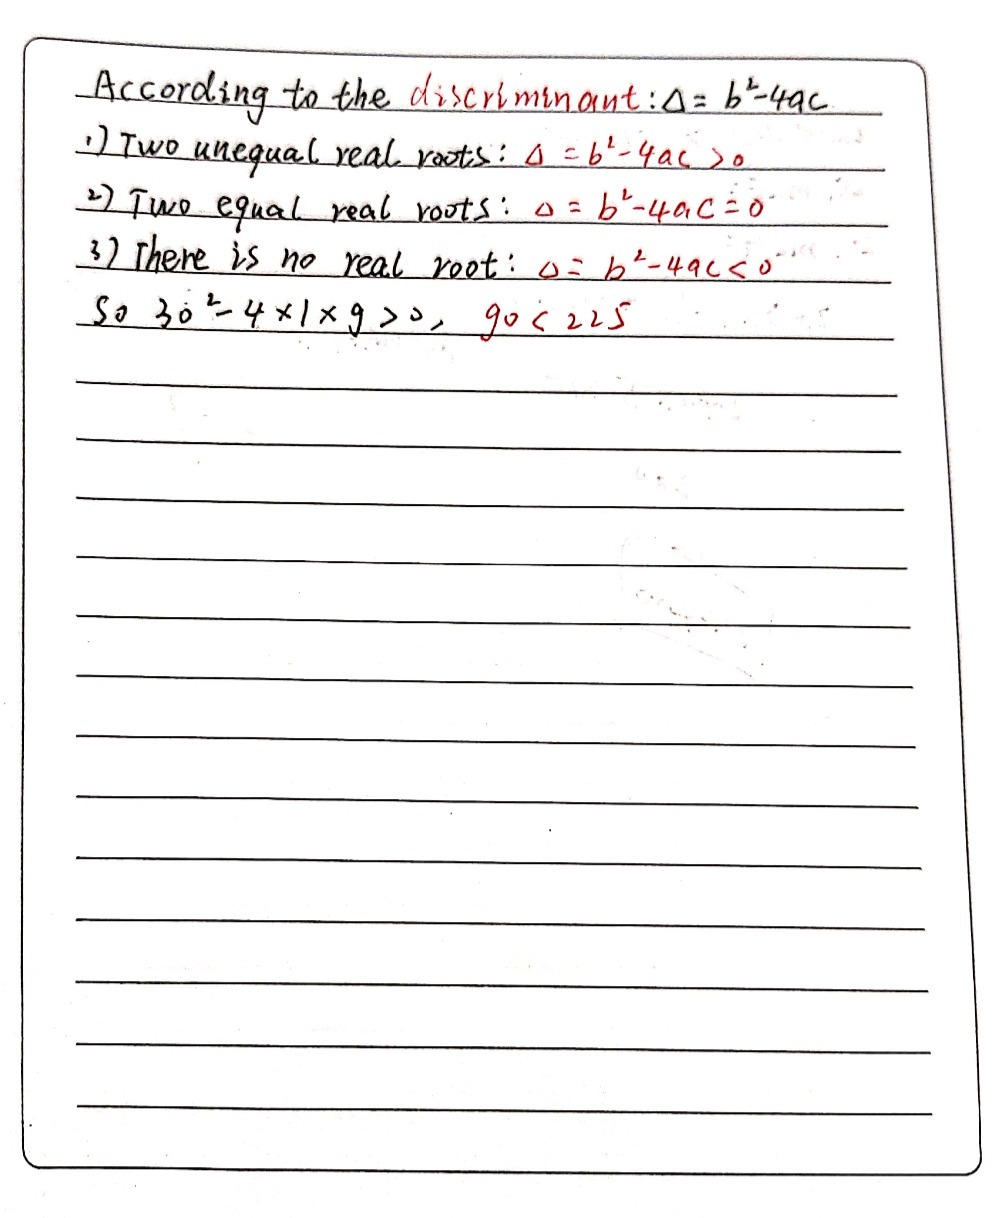 According to the discriminant: Δ = b²-4ac
1) Two unequal real roots: Δ = b²-4ac >0
2) Two equal real roots: Δ = b²-4ac = 0
3) There is no real root: Δ = b²-4ac < 0
So 30²-4×1×9 >0, 90 < 225